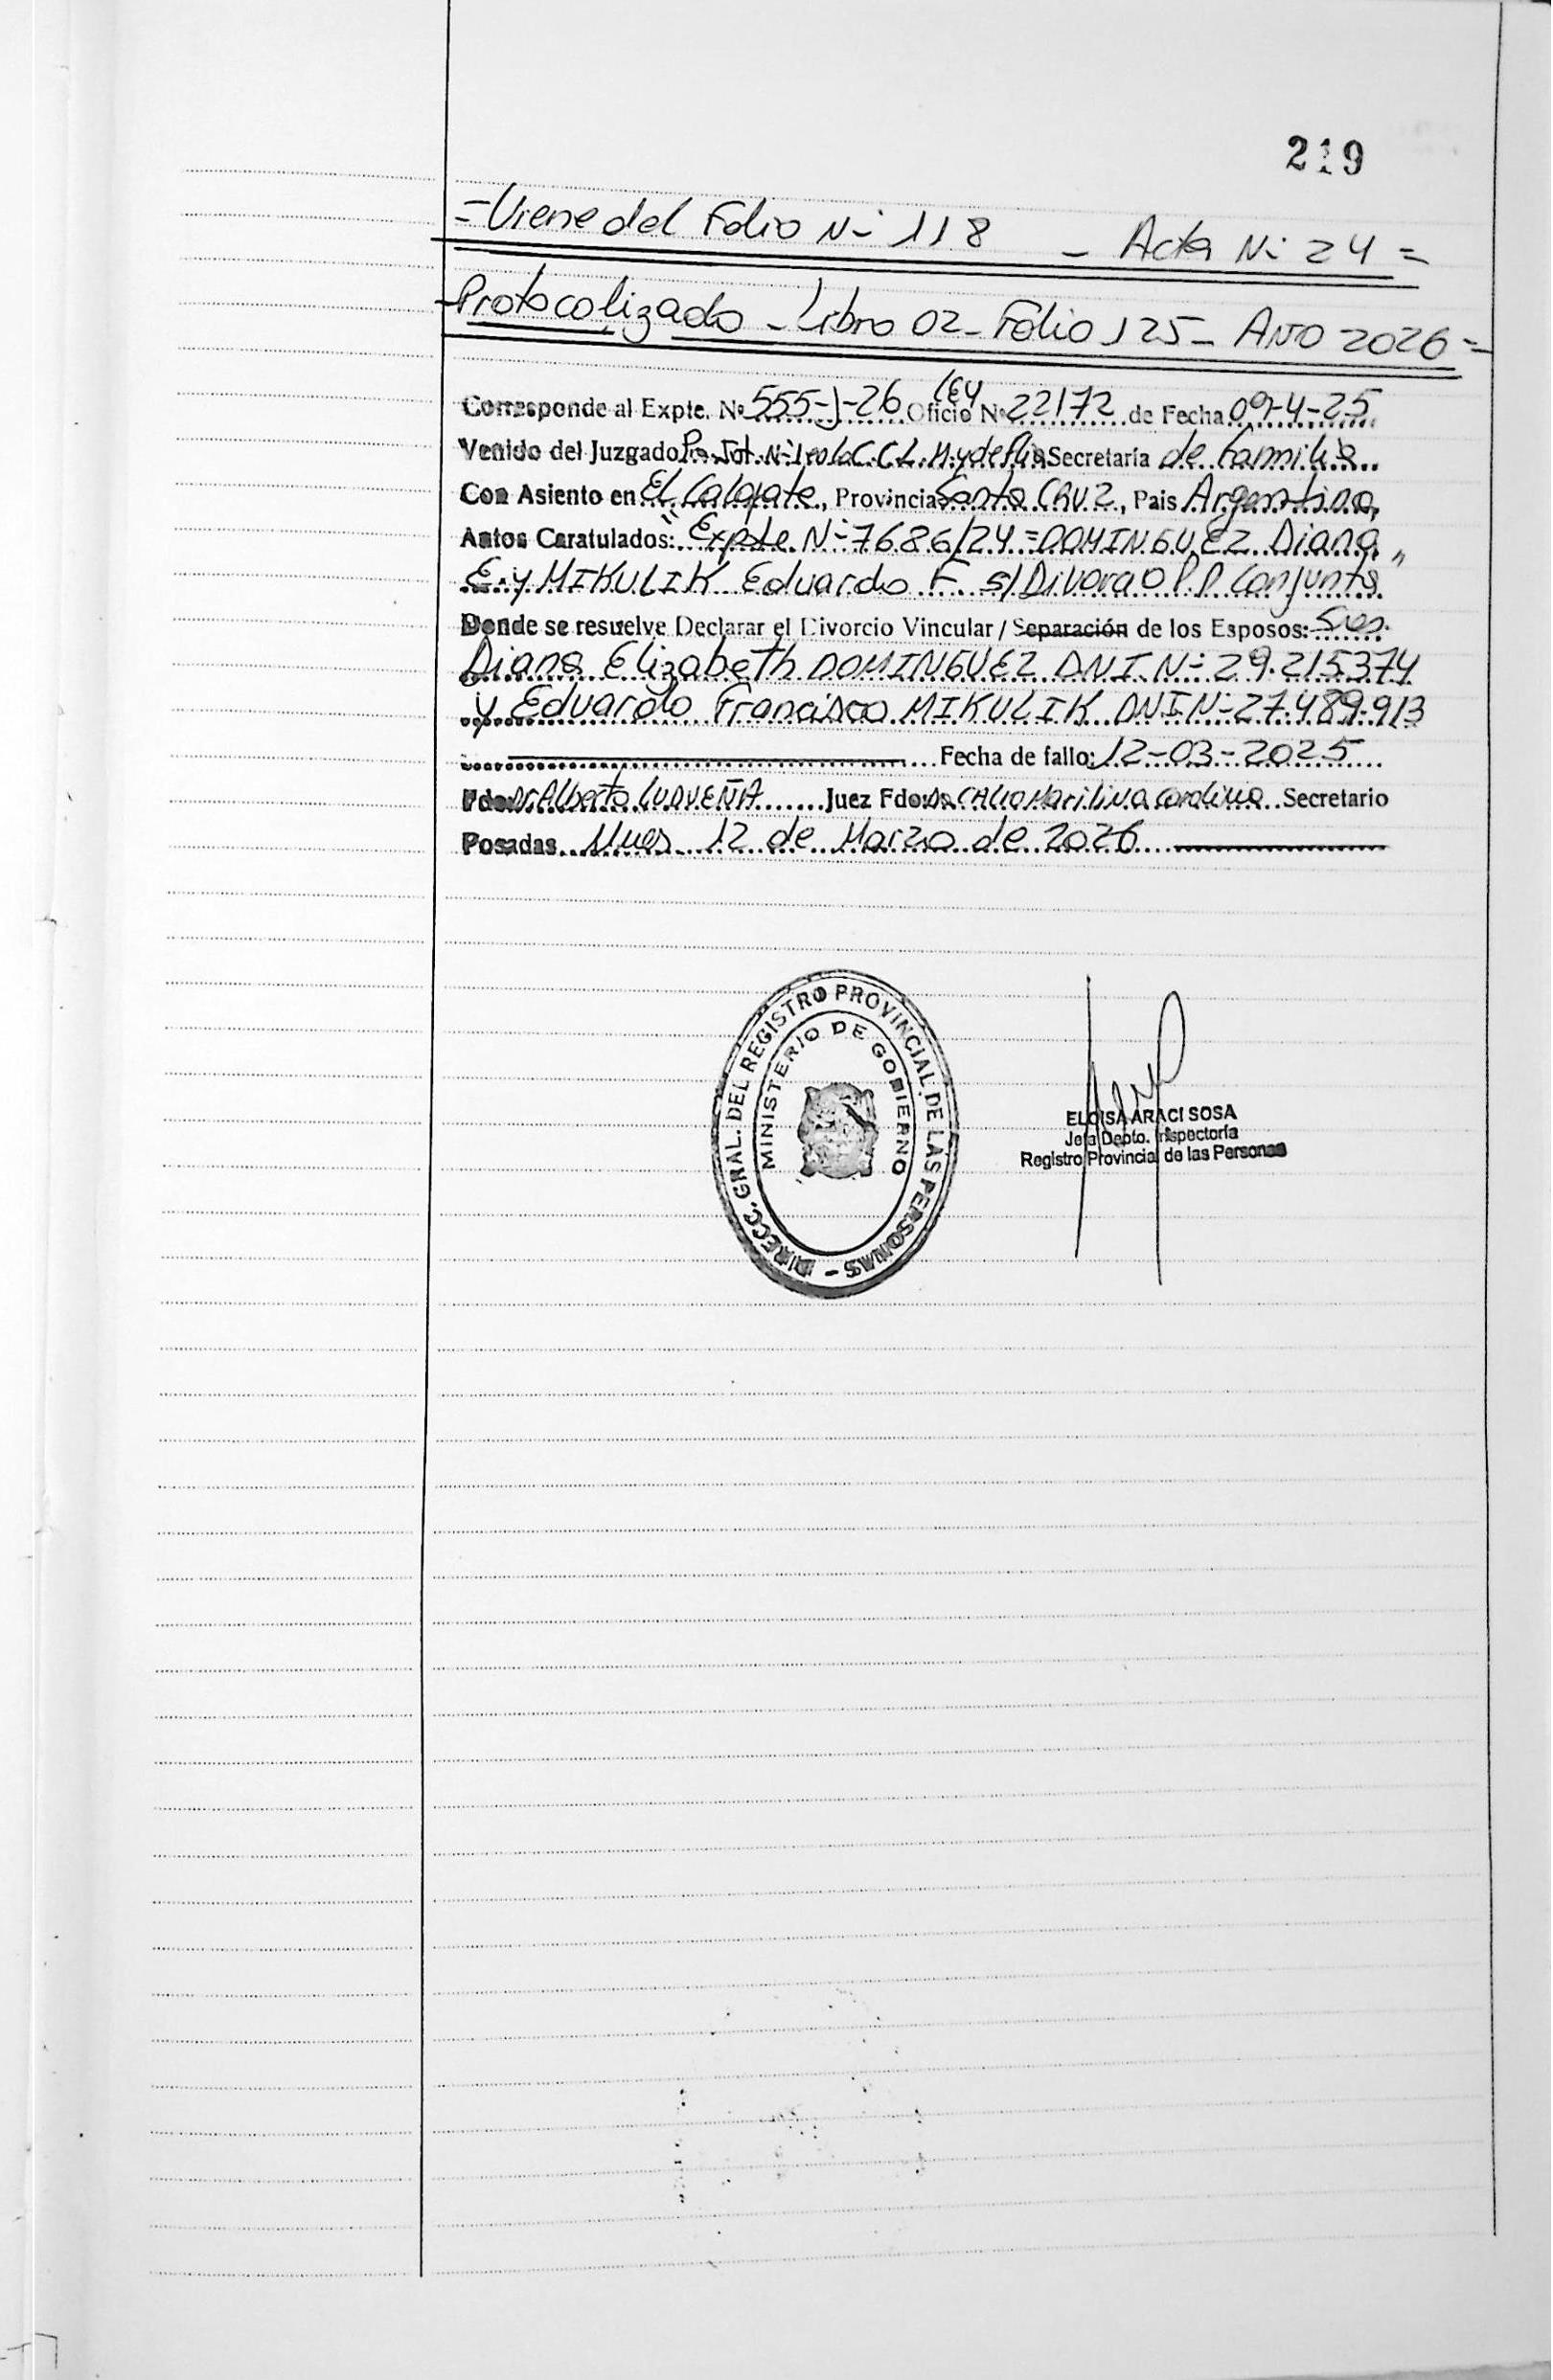 219
=Viene del Folio N- 118 - Acta N- 24=
-Protocolizado - Libro 02 - Folio 125 - Año 2026=
Corresponde al Expte. Nº 555-J-26 Ley Oficio Nº 22172 de Fecha 09-4-25
Venido del Juzgado N-1 en lo C.C.L.M. y de flia Secretaría de Familia
Con Asiento en El Calafate, Provincia Santa Cruz, Pais Argentina,
Autos Caratulados: "Expte N-7686/24=DOMINGUEZ Diana
E. y MIKULIK Eduardo F. s/Divorcio P.P. Conjunta"
Donde se resuelve Declarar el Divorcio Vincular / Separación de los Esposos: Sres.
Diana Elizabeth DOMINGUEZ DNI N- 29.215374
y Eduardo Francisco MIKULIK DNI N- 27.489.913
Fecha de fallo: 12-03-2025
Fdo: Dr Alberto LUDUEÑA Juez Fdo: Marilina Secretario
Posadas, Mnes 12 de Marzo de 2026
DIRECC. GRAL. DEL REGISTRO PROVINCIAL DE LAS PERSONAS -
MINISTERIO DE GOBIERNO
ELOISA ARACI SOSA
Jefa Depto. Inspectoría
Registro Provincial de las Personas